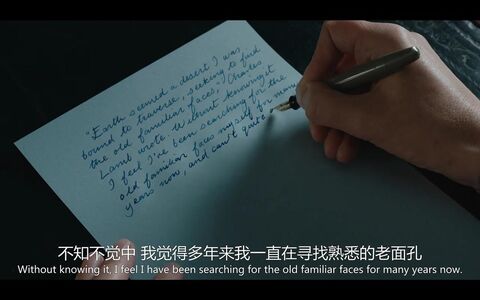 "Earth seemed a desert I was
bound to traverse, seeking to find
the old familiar faces," Charles
Lamb wrote. Without knowing it
I feel I've been searching for the
old familiar faces myself for many
years now, and can't quite
不知不觉中 我觉得多年来我一直在寻找熟悉的老面孔
Without knowing it, I feel I have been searching for the old familiar faces for many years now.